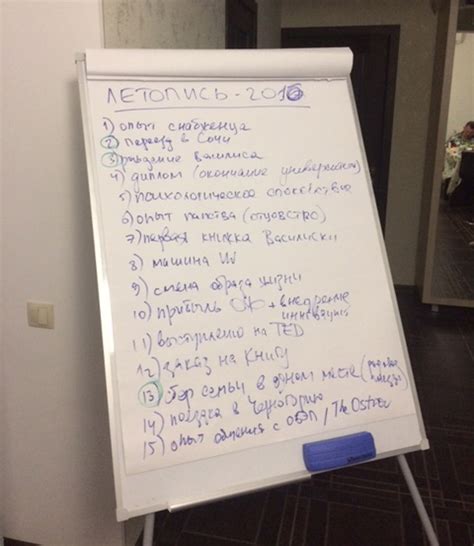 ЛЕТОПИСЬ - 2016
1) опыт снабженца
2) переезд в Сочи
3) рождение Василиса
4) диплом (окончание университета)
5) психологическое спокойствие
6) опыт папства (отцовство)
7) первая книжка Василиски
8) машина
9) смена образа жизни
10) прибыль + внедрение
инноваций
11) выступлению на TED
12) заказ на книгу
13) сбор семьи в одном месте (
14) поездка в Черногорию
15) опыт общения с / The Ostrov